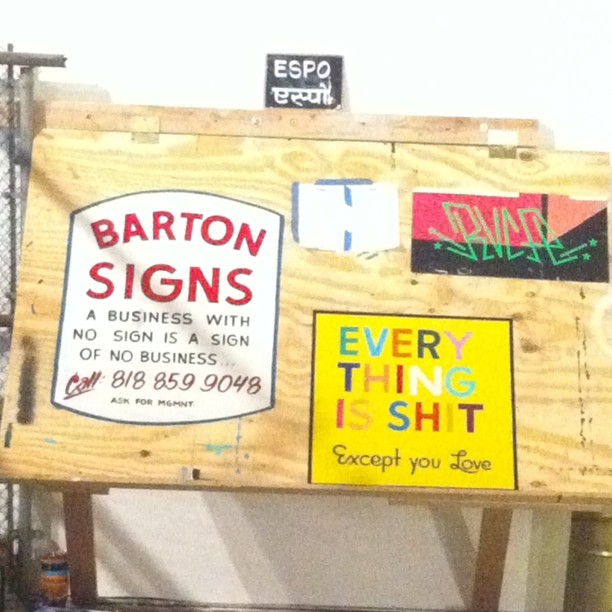 ESPO
एस्पो
BARTON
SIGNS
A BUSINESS WITH
NO SIGN IS A SIGN
OF NO BUSINESS...
Call: 818 859 9048
ASK FOR MGMNT.
RVCA
EVERY
THING
IS SHIT
Except you Love